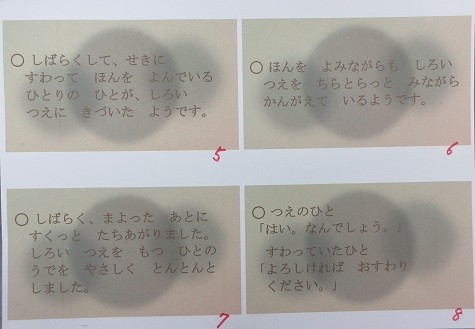 ○ しばらくして、せきに
すわって ほんを よんでいる
ひとりの ひとが、しろい
つえに きづいた ようです。
5
○ ほんを よみながらも しろい
つえを ちらとらっと みながら
かんがえて いるようです。
6
○ しばらく、まよった あとに
すくっと たちあがりました。
しろい つえを もつ ひとの
うでを やさしく とんとんと
しました。
7
○ つえのひと
「はい。なんでしょう。」
すわっていたひと
「よろしければ おすわり
ください。」
8